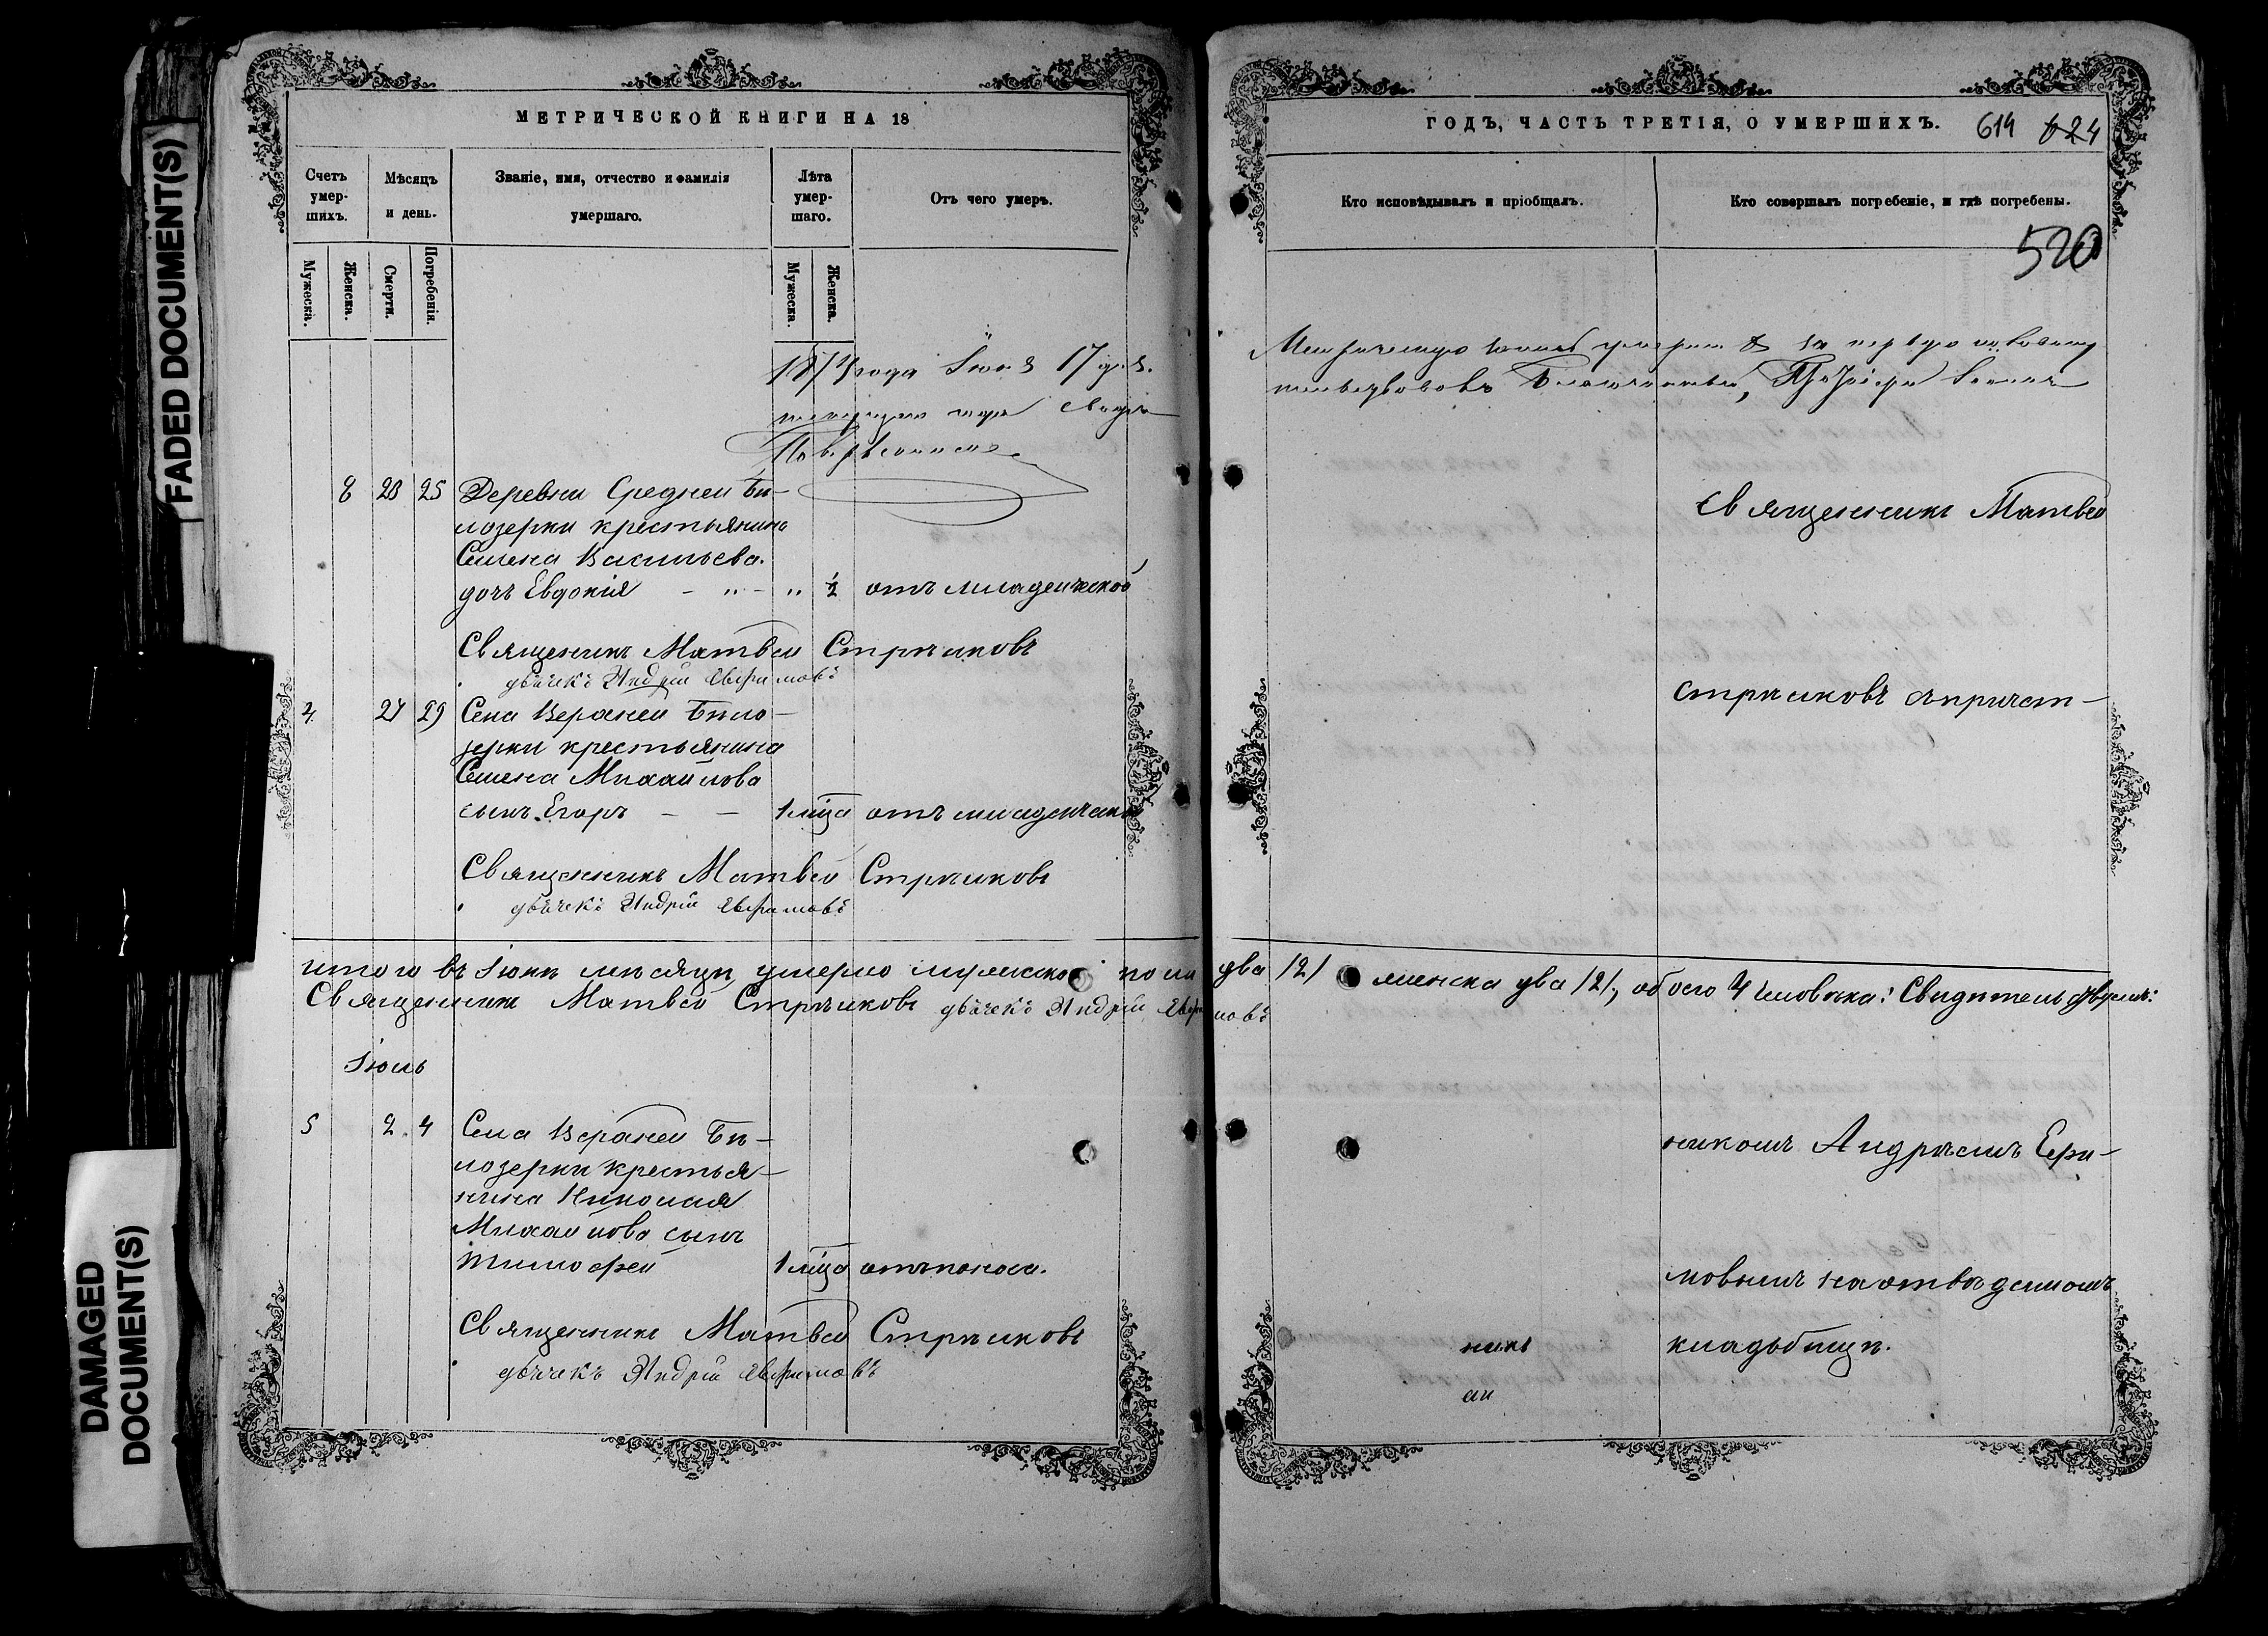 FADED DOCUMENT(S)
DAMAGED
DOCUMENT(S)
МЕТРИЧЕСКОЙ КНИГИ НА 18
Счетъ умер-шихъ.
Мѣсяцъ и день.
Званіе, имя, отчество и фамилія умершаго.
Лѣта умер-шаго.
Отъ чего умеръ.
Мужеска.
Женска.
Смерти.
Погребенія.
Мужеска.
Женска.
года 17
8 23 25 Деревни Средней Бѣ-
лозерки крестьянина
Семена Васильева
дочь Евдокія - " - " ½ отъ младенческой
Священникъ Матвей Стрѣлковъ
дьячекъ Андрій Евфимовъ
4 27 29 Села Верхней Бѣло-
зерки крестьянина
Семена Михайлова
сынъ Егоръ - - 1 мѣца отъ младенческой
Священникъ Матвей Стрѣлковъ
дьячекъ Андрій Евфимовъ
итого въ Іюнѣ мѣсяцѣ умерло мужеска пола
Священникъ Матвей Стрѣлковъ дьячекъ Андрій Евфи
Іюль
5 2 4 Села Верхней Бѣ-
лозерки крестья-
нина Николая
Михайлова сынъ
Тимофей 1 мѣца отъ поноса.
Священникъ Матвей Стрѣлковъ
дьячекъ Андрій Евфимовъ
ГОДЪ, ЧАСТЬ ТРЕТІЯ, О УМЕРШИХЪ. 614 624
Кто исповѣдывалъ и пріобщалъ.
Кто совершалъ погребеніе, и гдѣ погребены.
520
за первую половину
Священникъ Матвей
Стрѣлковъ съ причет-
два /2/ женска два /2/, обоего 4 человѣка:
мовъ
никомъ Андрѣемъ Ефи-
мовымъ на отвѣденномъ
никъ кладбищѣ.